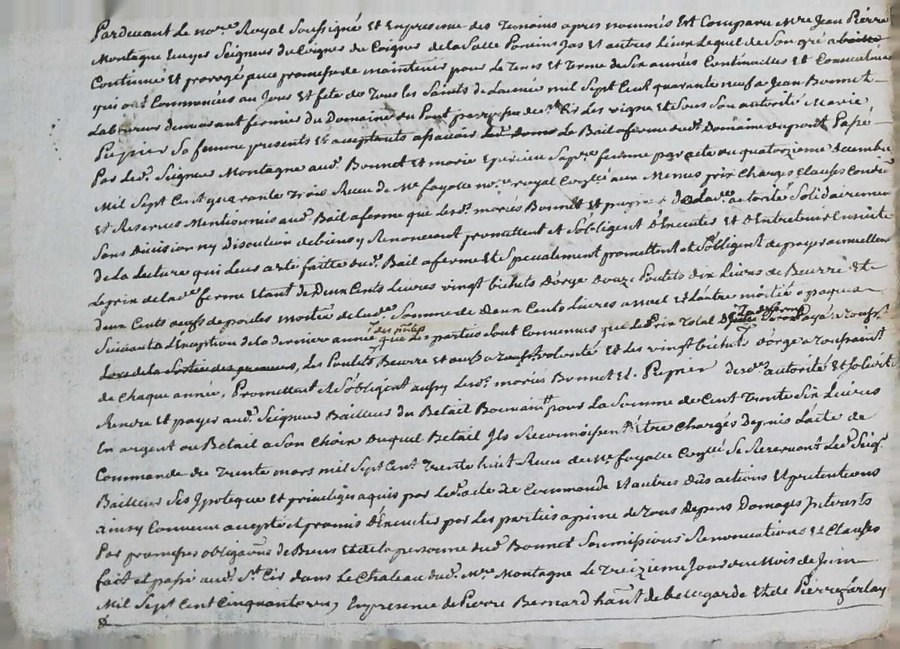 Pardevant Le no.re Royal Soussigné Et En presence des Temoins apres nommés Est Comparu M.re Jean Pierre
Montagne Ecuyer Seigneur du Poncins Jas Et autres Lieux Lequel de Son gré a
Continué et prorogé avec promesse de maintenir pour Le Tems et Terme de Six années Continuelles Et Consecutives
qui ont Commencées au Jour Et fete de Tous les Saints de Lannée mil Sept Cent quarante neuf a Jean Bonnet
Laboureur demeurant fermier du Domaine du Pont parroisse de S.t Cir Les vigne Et Sous Son autorité Marie
Pupier Sa femme presents Et acceptants assavoir Le Bail a ferme dud. Domaine du pont Passé
Par Led. Seigneur Montagne aud. Bonnet et marie Sa femme par acte du quatorzieme decembre
Mil Sept Cent quarante Trois Recu de M.e fayolle no.re royal aux Memes prix Charges Clauses
et Reserves Mentionnés aud. Bail a ferme que Lesd. mariés Bonnet et de lad. autorité Solidairement
Sans Division ny discution de biens y Renoncant promettent et S'obligent d'Executer Et d'Entretenir
de La Lecture qui Leur a eté faitte dud. Bail a ferme et Specialement promettent et S'obligent de payer annuellement
Le prix de lad. ferme Etant de Deux Cents Livres vingt bichets d'orge douze Poulets dix Livres de Beurre et
deux Cents oeufs de poules moitié de lad. Somme de Deux Cents Livres a Noel et L'autre moitié a paques
Suivants a Exeption de la derniere année que Les parties Sont Convenues que Le Prix Total Sera Payé
Lors de la Sortie des preneurs, Les Poulets Beurre Et oeufs a volonté et Les vingt bichets d'orge a
de chaque année, Promettent et S'obligent aussy Lesd. mariés Bonnet et Pupier de
Rendre Et payer aud. Seigneur Bailleur du Betail pour La Somme de Cent Trente Six Livres
En argent ou Betail a Son Choix duquel Betail Ils Reconnoissent Etre Chargés depuis Lacte de
Commande du Trente mars mil Sept Cent Trente huit Recu de M.e fayolle Se Reservant Led. Seig.r
Bailleur Ses Ipoteque et privileges aquis par Led. acte de Commande et autres Ses actions Et pretentions
ainsy Convenu accepté et promis d'Executer par Les parties a peine de Tous Depens Domages Interets
Par promesses obligations de Biens Et de la personne dud. Bonnet Soumissions Renonciations et Clauses
fait et passé aud. S.t Cir dans Le Chateau dud. M.re Montagne Le Treizieme Jour du Mois de Juin
Mil Sept Cent Cinquante En presence de Pierre Bernard hab.t de bellegarde Et de Pierre